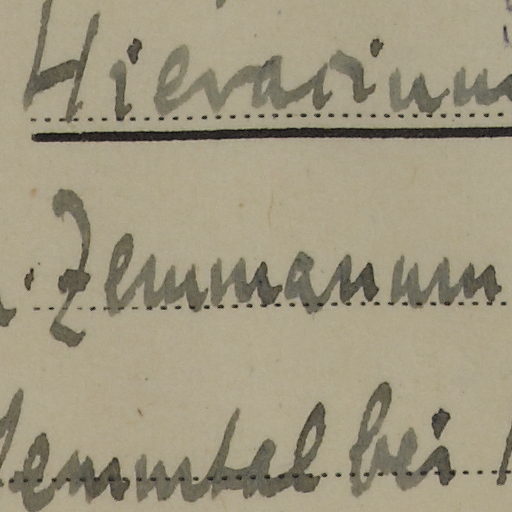 Hieracium
Zemmanum
Zemmtal bei